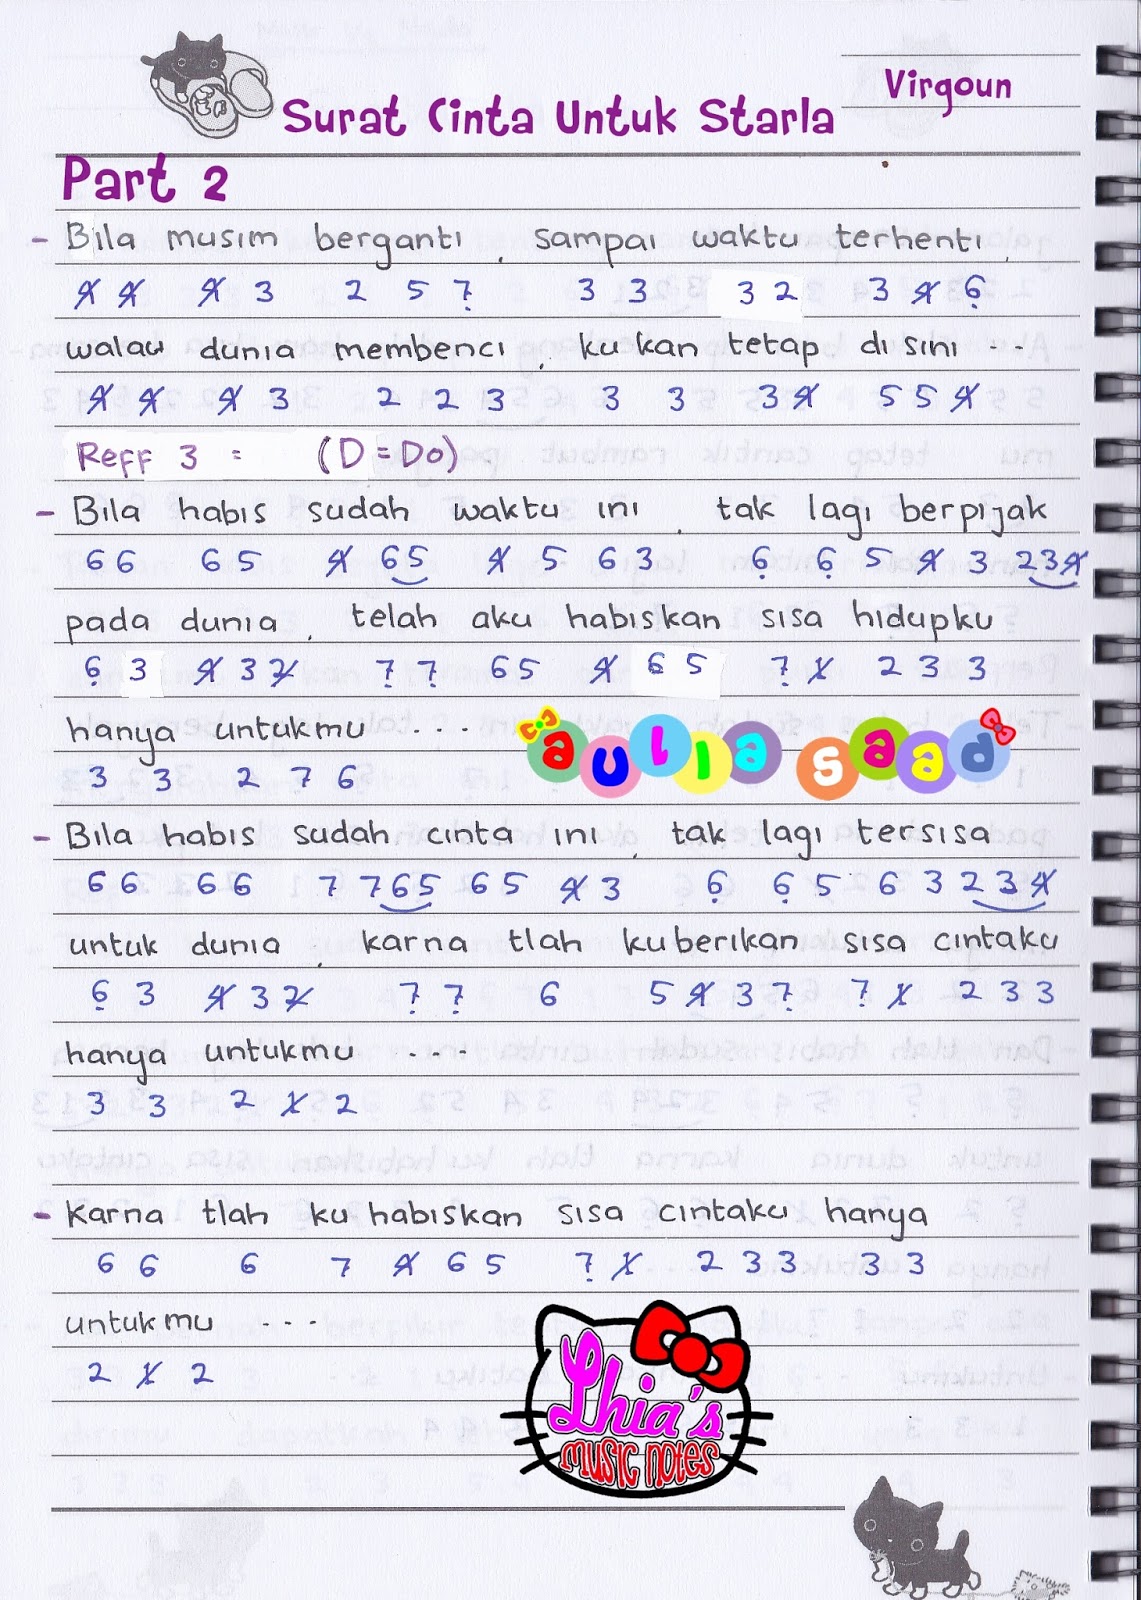 Virgoun
Surat Cinta Untuk Starla
Part 2
- Bila musim berganti, sampai waktu terhenti,
4̸ 4̸ 4̸ 3 2 5 7̣ 3 3 3 2 3 4̸ 6̣
walau dunia membenci, ku kan tetap disini ...
4̸ 4̸ 4̸ 3 2 2 3 3 3 3 4̸ 5 5 4̸
Reff 3 = (D=Do)
- Bila habis sudah waktu ini, tak lagi berpijak
6 6 6 5 4̸ 6 5 4̸ 5 6 3 6̣ 6̣ 5 4̸ 3 2 3 4̸
pada dunia, telah aku habiskan sisa hidupku
6̣ 3 4̸ 3 2̸ 7̣ 7̣ 6 5 4̸ 6 5 7̣ 1̸ 2 3 3
hanya untukmu ...
3 3 2 7 6
aulia saad
- Bila habis sudah cinta ini, tak lagi tersisa
6 6 6 6 7 7 6 5 6 5 4̸ 3 6̣ 6̣ 5 6 3 2 3 4̸
untuk dunia, karna tlah kuberikan sisa cintaku
6̣ 3 4̸ 3 2̸ 7̣ 7̣ 6 5 4̸ 3 7̣ 7̣ 1̸ 2 3 3
hanya untukmu ...
3 3 2 1̸ 2
- Karna tlah ku habiskan sisa cintaku hanya
6 6 6 7 4̸ 6 5 7̣ 1̸ 2 3 3 3 3
untukmu ...
2 1̸ 2
Lhia's
music notes